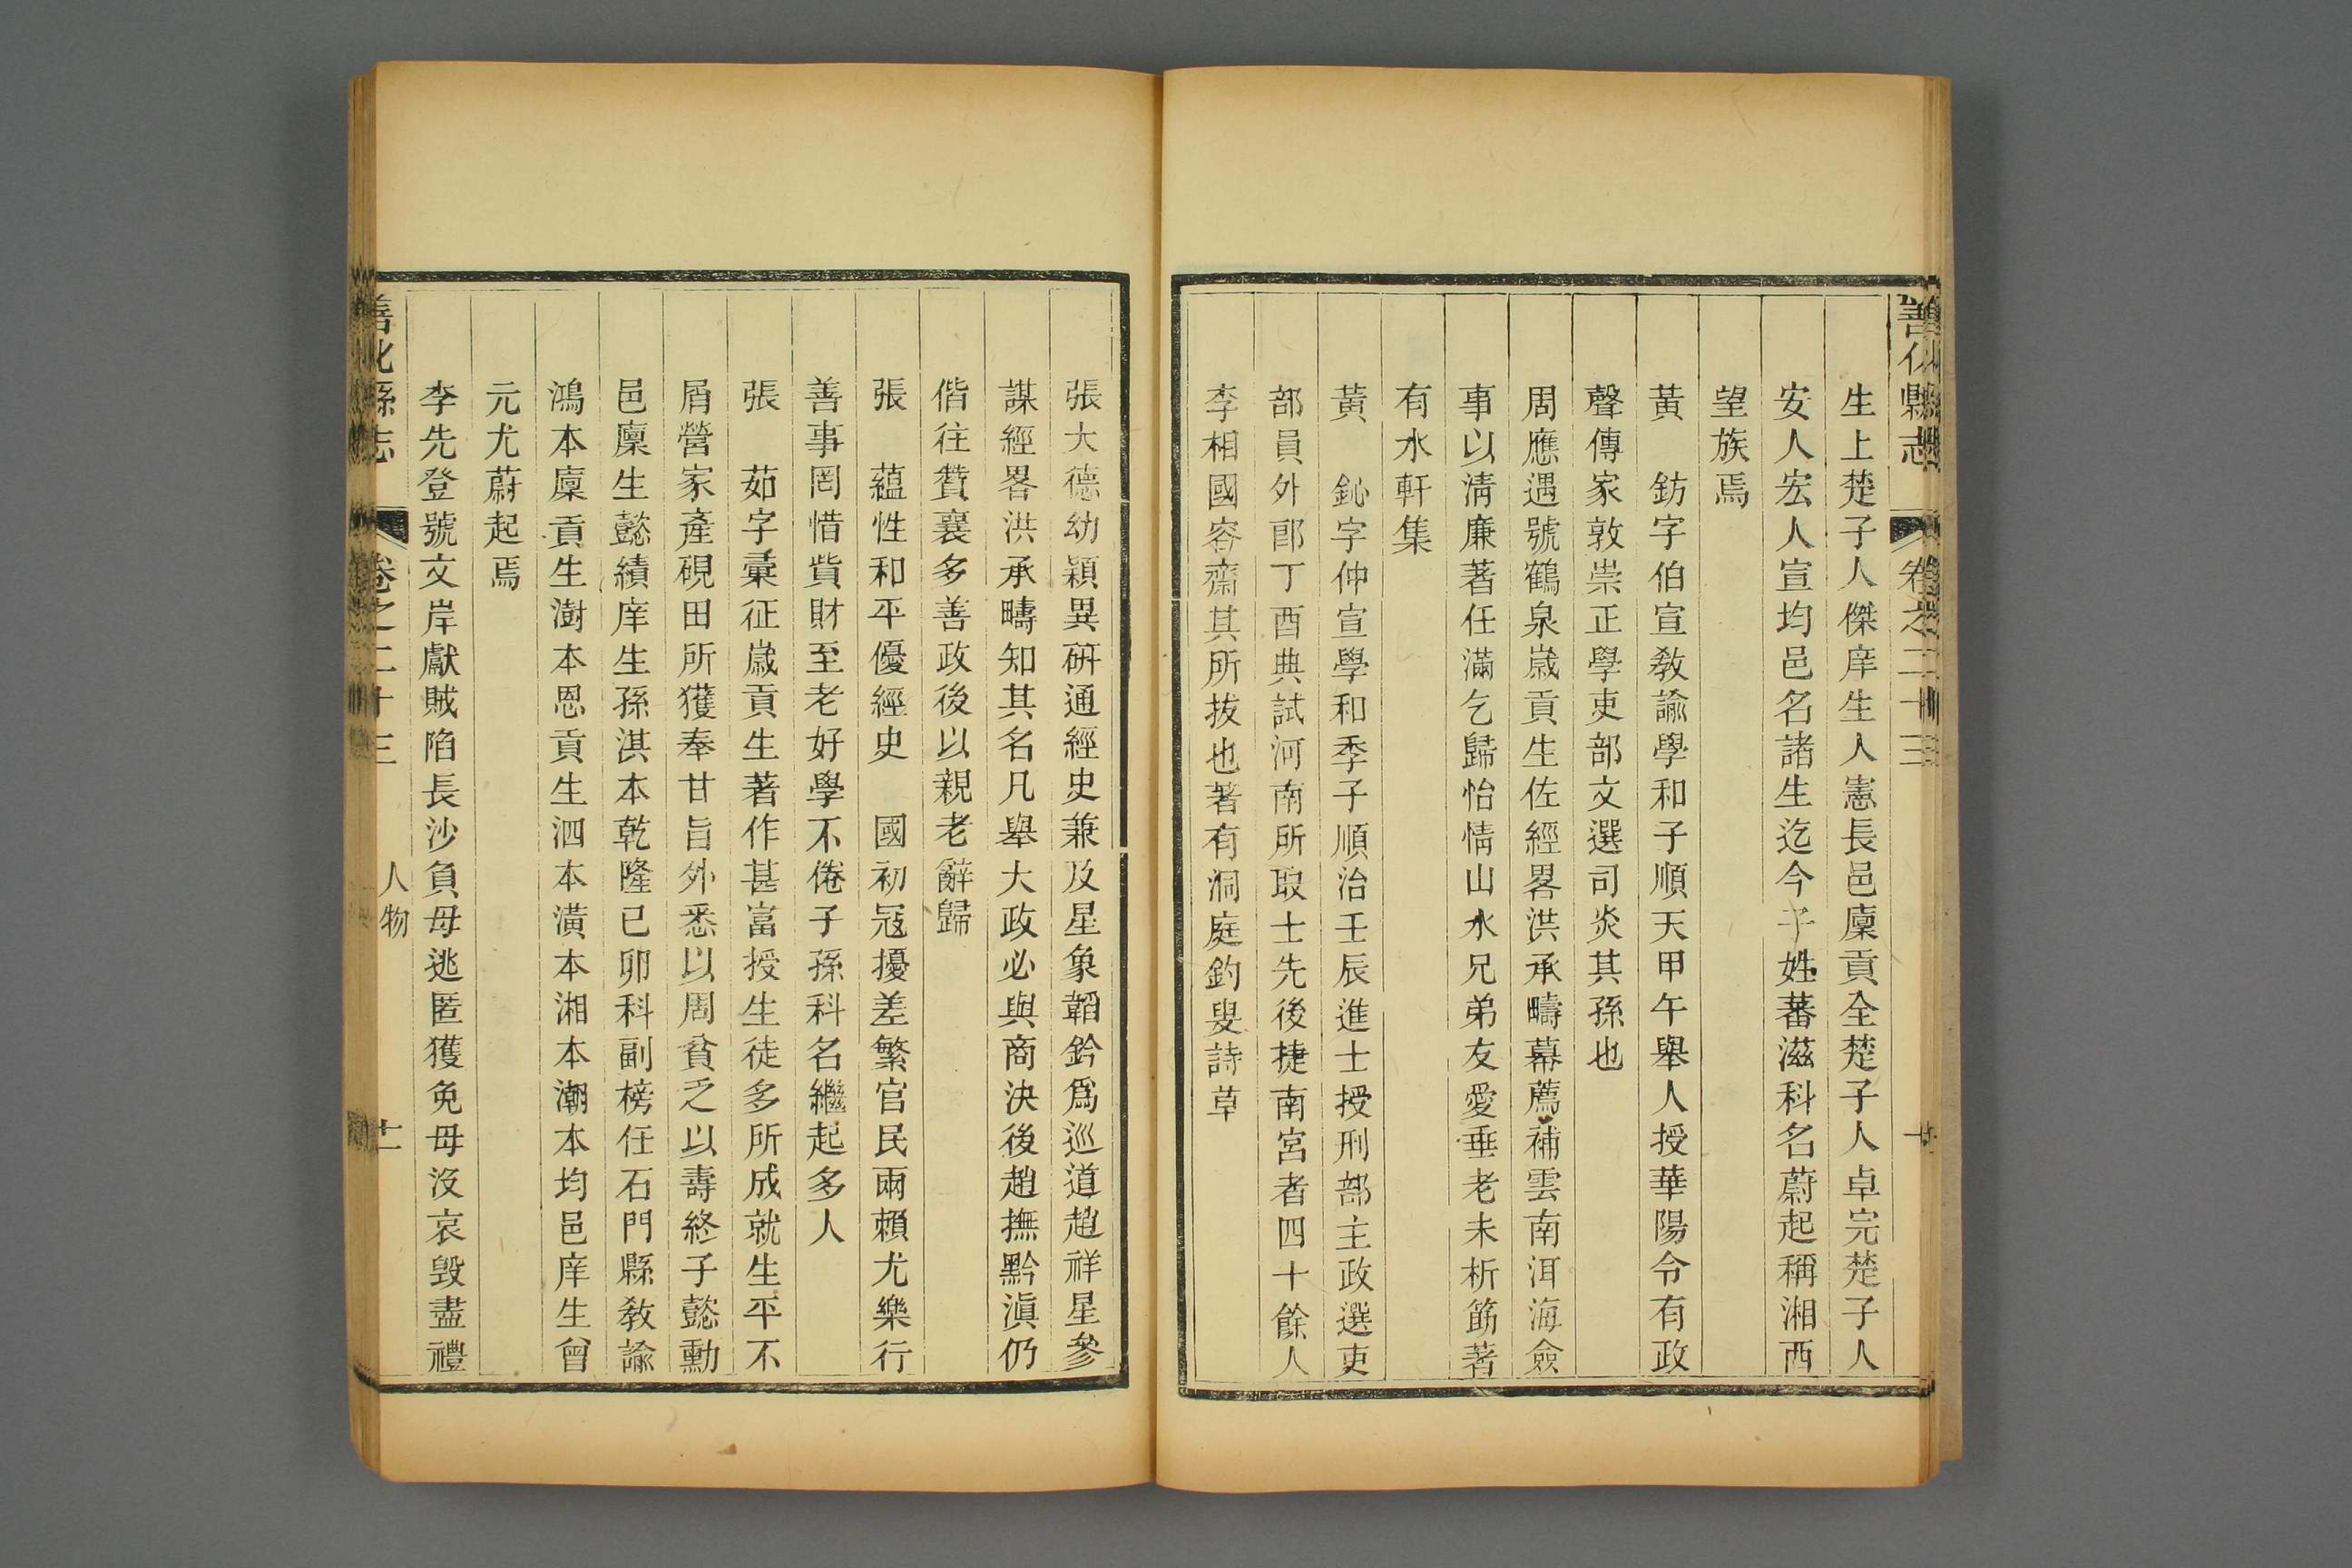 善化縣志 卷之二十三
生上楚子人傑庠生人憲長邑廩貢全楚子人卓完楚子人
安人宏人宣均邑名諸生迄今子姓蕃滋科名蔚起稱湘西
望族焉
黃 鈁字伯宣敎諭學和子順天甲午舉人授華陽令有政
聲傳家敦崇正學吏部文選司炎其孫也
周應遇號鶴泉歲貢生佐經畧洪承疇幕薦補雲南洱海僉
事以淸廉著任滿乞歸怡情山水兄弟友愛垂老未析筯著
有水軒集
黃 鈊字仲宣學和季子順治壬辰進士授刑部主政選吏
部員外郎丁酉典試河南所取士先後捷南宮者四十餘人
李相國容齋其所拔也著有洞庭釣叟詩草
張大德幼穎異硏通經史兼及星象韜鈐爲巡道趙祥星參
謀經畧洪承疇知其名凡舉大政必與商決後趙撫黔滇仍
偕往贊襄多善政後以親老辭歸
張 蘊性和平優經史 國初寇擾差繁官民兩賴尤樂行
善事罔惜貲財至老好學不倦子孫科名繼起多人
張 茹字彙征歲貢生著作甚富授生徒多所成就生平不
屑營家產硯田所獲奉甘旨外悉以周貧乏以壽終子懿勳
邑廩生懿績庠生孫淇本乾隆已卯科副榜任石門縣敎諭
鴻本廩貢生澍本恩貢生泗本潢本湘本潮本均邑庠生曾
元尤蔚起焉
李先登號文岸獻賊陷長沙負母逃匿獲免母沒哀毀盡禮
善化縣志 卷之二十三 人物 十一